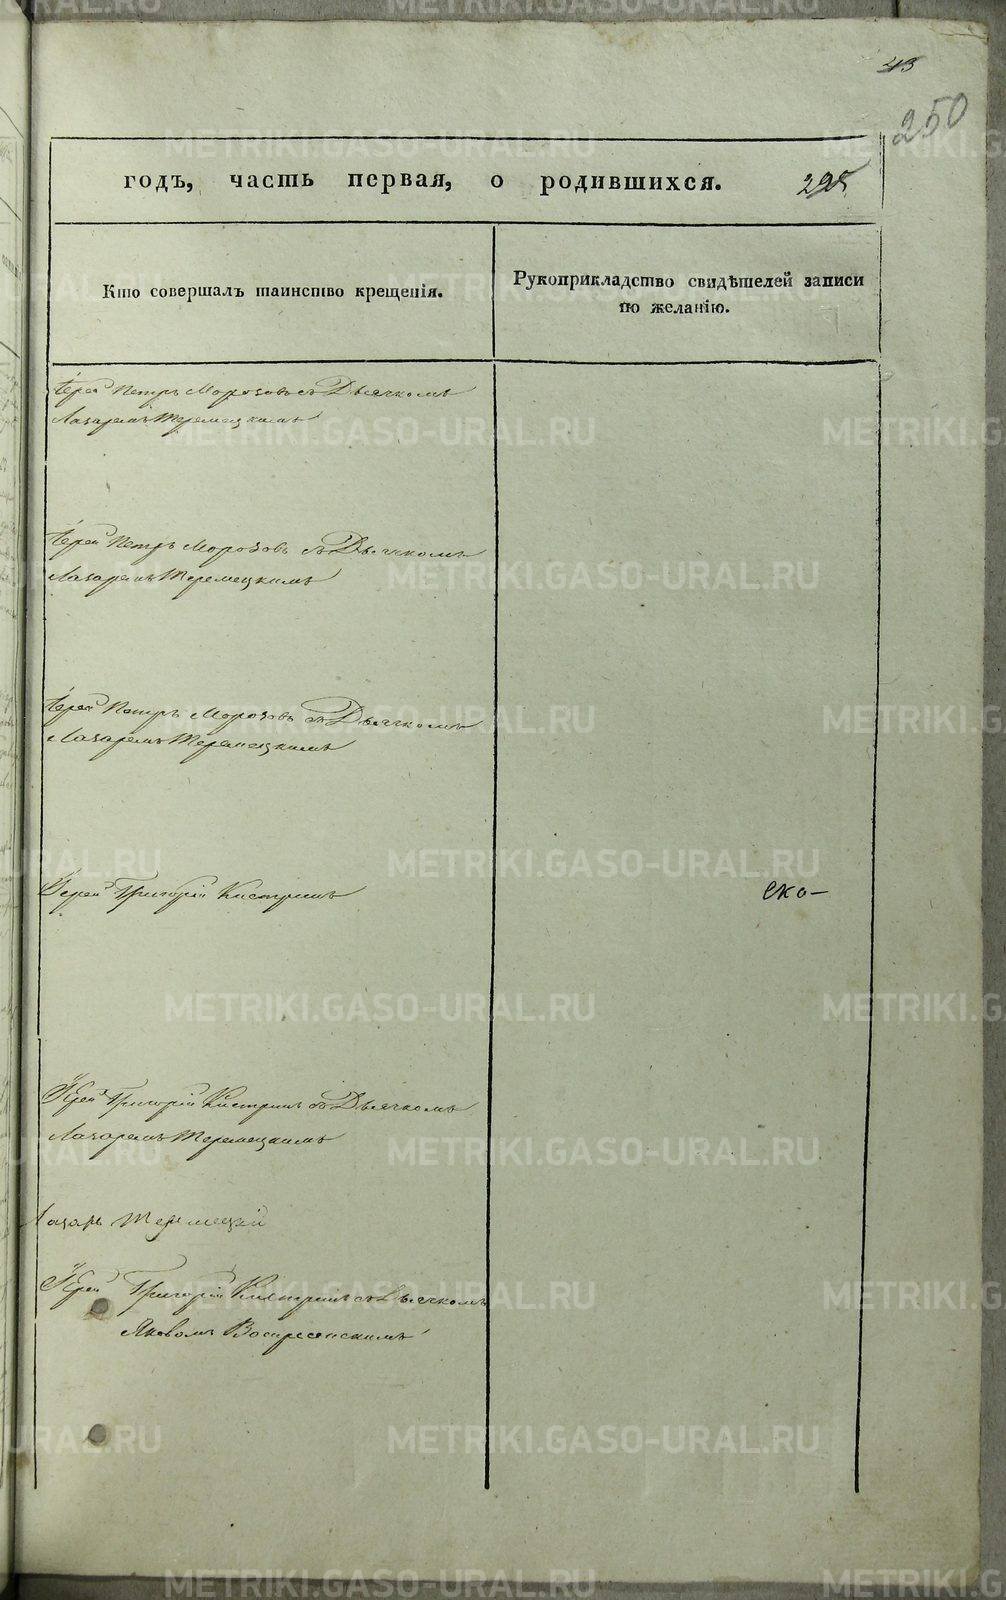 43
250
годъ, часть первая, о родившихся. 295
Кто совершалъ таинство крещенія.
Рукоприкладство свидѣтелей записи
по желанію.
Іерей Петръ Морозовъ съ Дьячкомъ
Лазаремъ Теремецкимъ
Іерей Петръ Морозовъ съ Дьячкомъ
Лазаремъ Теремецкимъ
Іерей Петръ Морозовъ съ Дьячкомъ
Лазаремъ Теремецкимъ
Іерей Григорій Кистринъ
Ека-
Іерей Григорій Кистринъ съ Дьячкомъ
Лазаремъ Теремецкимъ
Лазарь Теремецкій
Іерей Григорій Кистринъ съ Дьячкомъ
Яковомъ Воскресенскимъ
METRIKI.GASO-URAL.RU